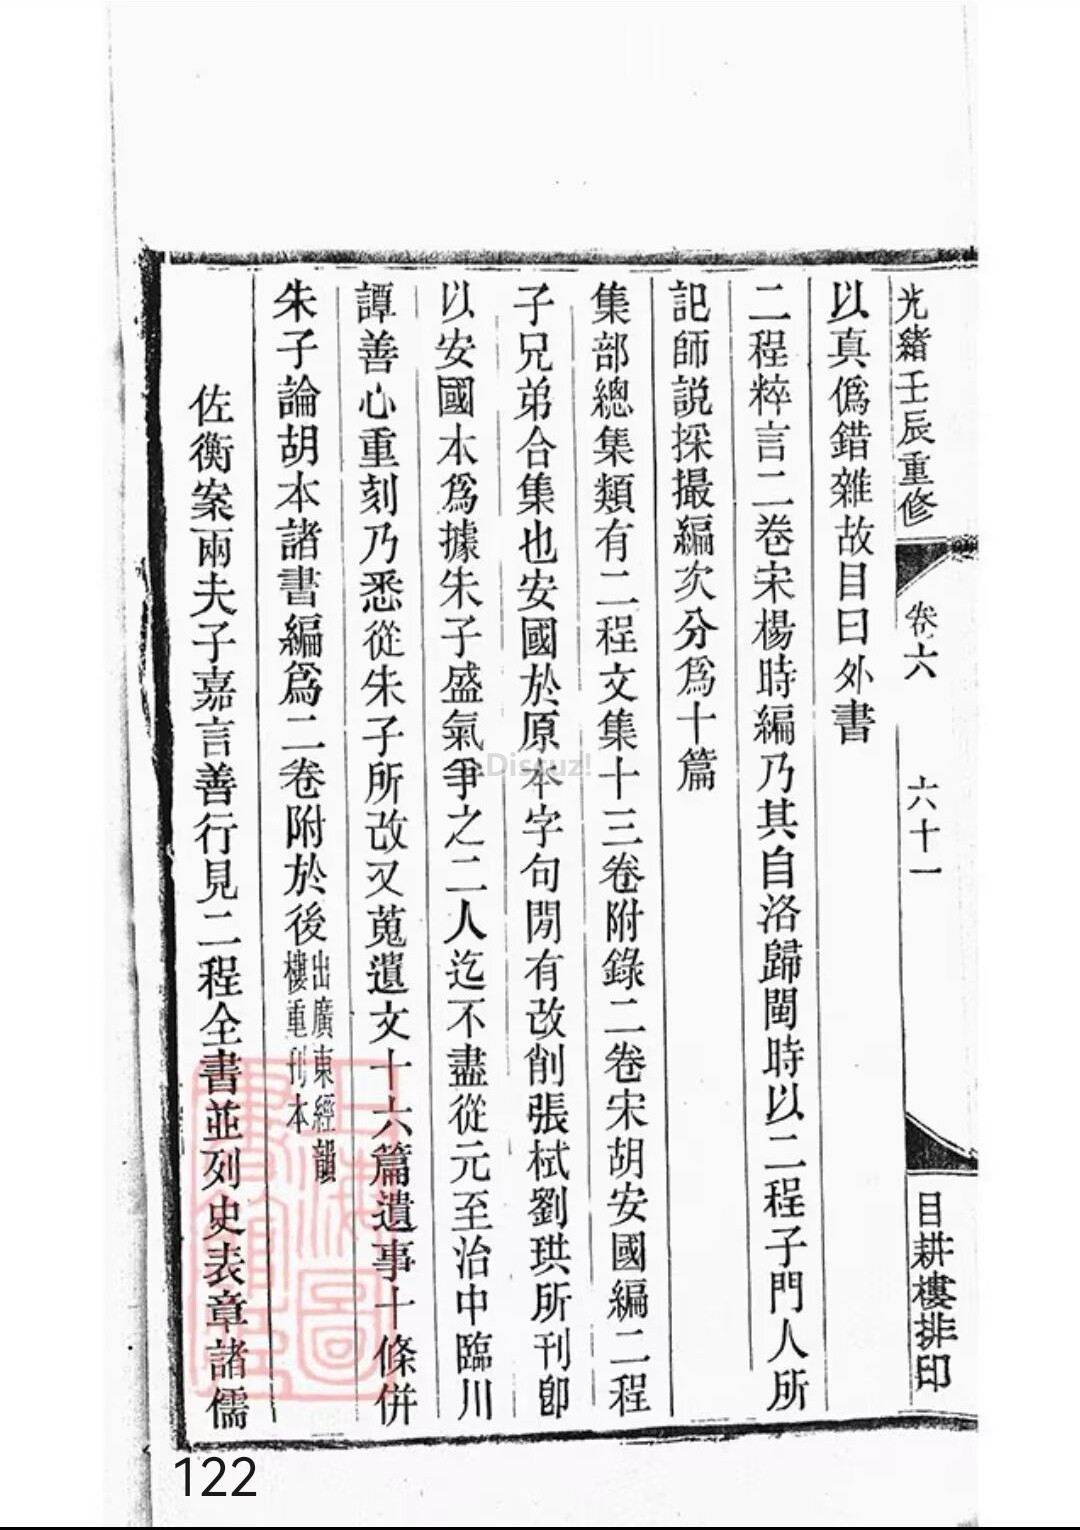 光緒壬辰重修
卷六
六十一
目耕樓排印
以真僞錯雜故目曰外書
二程粹言二卷宋楊時編乃其自洛歸閩時以二程子門人所
記師說採撮編次分爲十篇
集部總集類有二程文集十三卷附錄二卷宋胡安國編二程
子兄弟合集也安國於原本字句閒有改削張栻劉珙所刊卽
以安國本爲據朱子盛氣爭之二人迄不盡從元至治中臨川
譚善心重刻乃悉從朱子所改又蒐遺文十六篇遺事十條併
朱子論胡本諸書編爲二卷附於後出廣東經韻
樓重刊本
佐衡案兩夫子嘉言善行見二程全書並列史表章諸儒
上海圖
書館藏
Discuz!
122